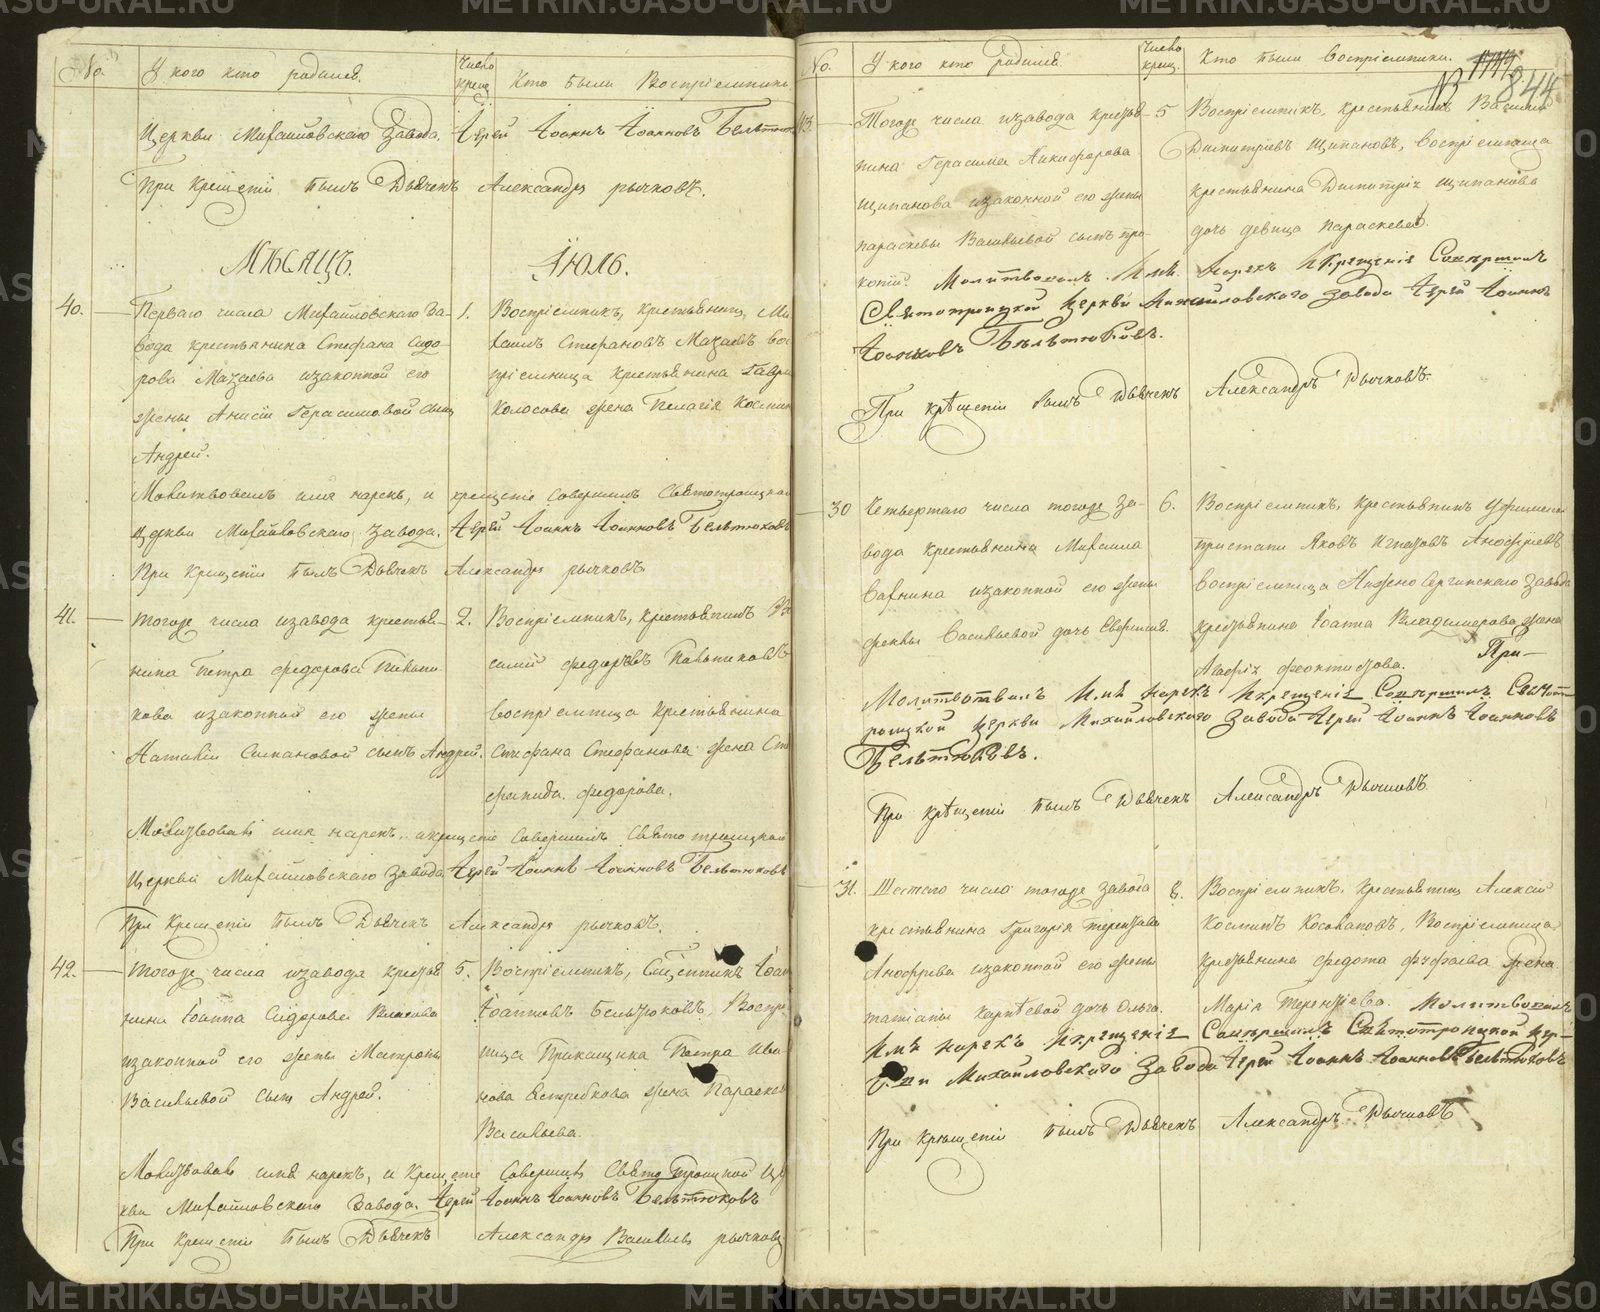 No. У кого кто родился. Число крещ. Кто были Восприемники
Церкви Михайловскаго Завода, Іерей Іоаннъ Іоанновъ Бельтюковъ
При Крещеніи былъ Дьячекъ Александръ рычковъ.
МѢСЯЦЪ. ІЮЛЬ.
40. Перваго числа Михайловскаго За-
вода крестьянина Стефана Сидо-
рова Мазаева изаконной его
жены Анисіи Герасимовой сынъ
Андрей.
1. Воспріемникъ, крестьянинъ, Ми
хаилъ Стефановъ Мазаевъ вос
пріемница Крестьянина Гаври
Колосова жена Пелагія Космин
Молитвовалъ имя нарекъ, и крещеніе Совершилъ Святотроицкой
церкви Михайловскаго завода, Іерей Іоаннъ Іоанновъ Бельтюковъ
При Крещеніи былъ Дьячекъ Александръ рычковъ
41. тогоже числа изавода крестья-
нина Петра федорова
кова изаконной его жены
Наталіи Степановой сынъ Андрей.
2. Воспріемникъ, крестьянинъ Ва
силій федоровъ
воспріемница Крестьянина
Стефана Стефанова жена Сте
фанида федорова.
Молитвовалъ имя нарекъ, икрещеніе Совершилъ Святотроицкой
Церкви Михайловскаго Завода Іерей Іоаннъ Іоанновъ Бельтюковъ
При Крещеніи былъ Дьячекъ Александръ рычковъ.
42. тогоже числа изавода крестья
нина Іоанна Сидорова Власова
изаконной его жены Матроны
Васильевой сынъ Андрей.
5. Воспріемникъ, Священникъ Іоан
Іоанновъ Бельтюковъ, Воспріе
ница Прикащика Петра Ива-
нова Ястребкова жена Параскев
Васильева.
Молитвовалъ имя нарекъ, и Крещеніе Совершилъ Святотроицкой Цер
кви Михайловскаго Завода, Іерей Іоаннъ Іоанновъ Бельтюковъ
При Крещеніи былъ Дьячекъ Александръ Васильевъ рычковъ
No. У кого кто родился. Число крещ. Кто были воспріемники.
844
43. Тогоже числа изавода крестья-
нина Герасима Никифорова
Щипанова изаконной его жены
параскевы Васильевой сынъ про-
копій.
5 Воспріемникъ, крестьянинъ Василій
Димитріевъ Щипановъ, воспріемница
крестьянина Димитрія Щипанова
дочь девица параскева.
Молитвовалъ Имя Нарекъ Икрещеніе Совершилъ
Святотроицкой Церкви Михайловскаго завода Іерей Іоаннъ
Іоанновъ Бельтюковъ.
При крѣщеніи былъ Дьячекъ Александръ Рычковъ.
30 Четвертаго числа тогоже за-
вода крестьянина Михаила
изаконной его жены
феклы Васильевой дочь Евфимія.
6. Воспріемникъ, крестьянинъ Уфимской
пристани Яковъ Игнатовъ Ануфріевъ
воспріемница Нижне Сергинскаго завода
крестьянина Іоанна Владимерова жена
Агафія феоктистова. При-
Молитвовалъ Имя нарекъ Икрещеніе Совершилъ Святот
роицкой церкви Михайловскаго Завода Іерей Іоаннъ Іоанновъ
Бельтюковъ.
При крѣщеніи былъ Дьячекъ Александръ Рычковъ
31. Шестаго числа тогоже завода
крестьянина Григорія Терентьева
Ануфріева изаконной его жены
татіаны Карпѣевой дочь Ольга.
8. Воспріемникъ, крестьянинъ Алексѣй
Косминъ Косоваповъ, Воспріемница
крестьянина федота жена
Марія Терентіева. Молитвовалъ
Имя нарекъ Икрещеніе Совершилъ Святотроицкой Цер-
кви Михайловскаго Завода Іерей Іоаннъ Іоанновъ Бельтюковъ
При крѣщеніи былъ Дьячекъ Александръ Рычковъ
METRIKI.GASO-URAL.RU